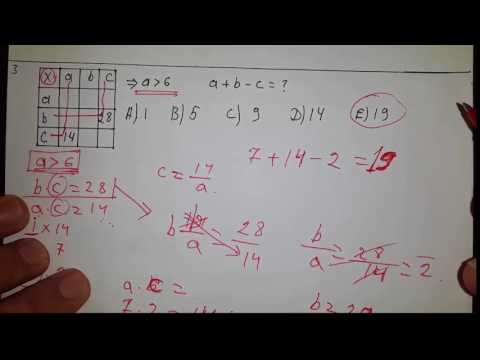 3
X a b c
a
b 28
c 14
⇒ a>6 a+b-c=?
A) 1 B) 5 C) 9 D) 14 E) 19
a>6
b.c=28
a.c=14
1 x 14
7
7+14-2=19
c=14/a
b/a=28/14
b/a=28/14=2
a.c=
7.2=14
b=2a